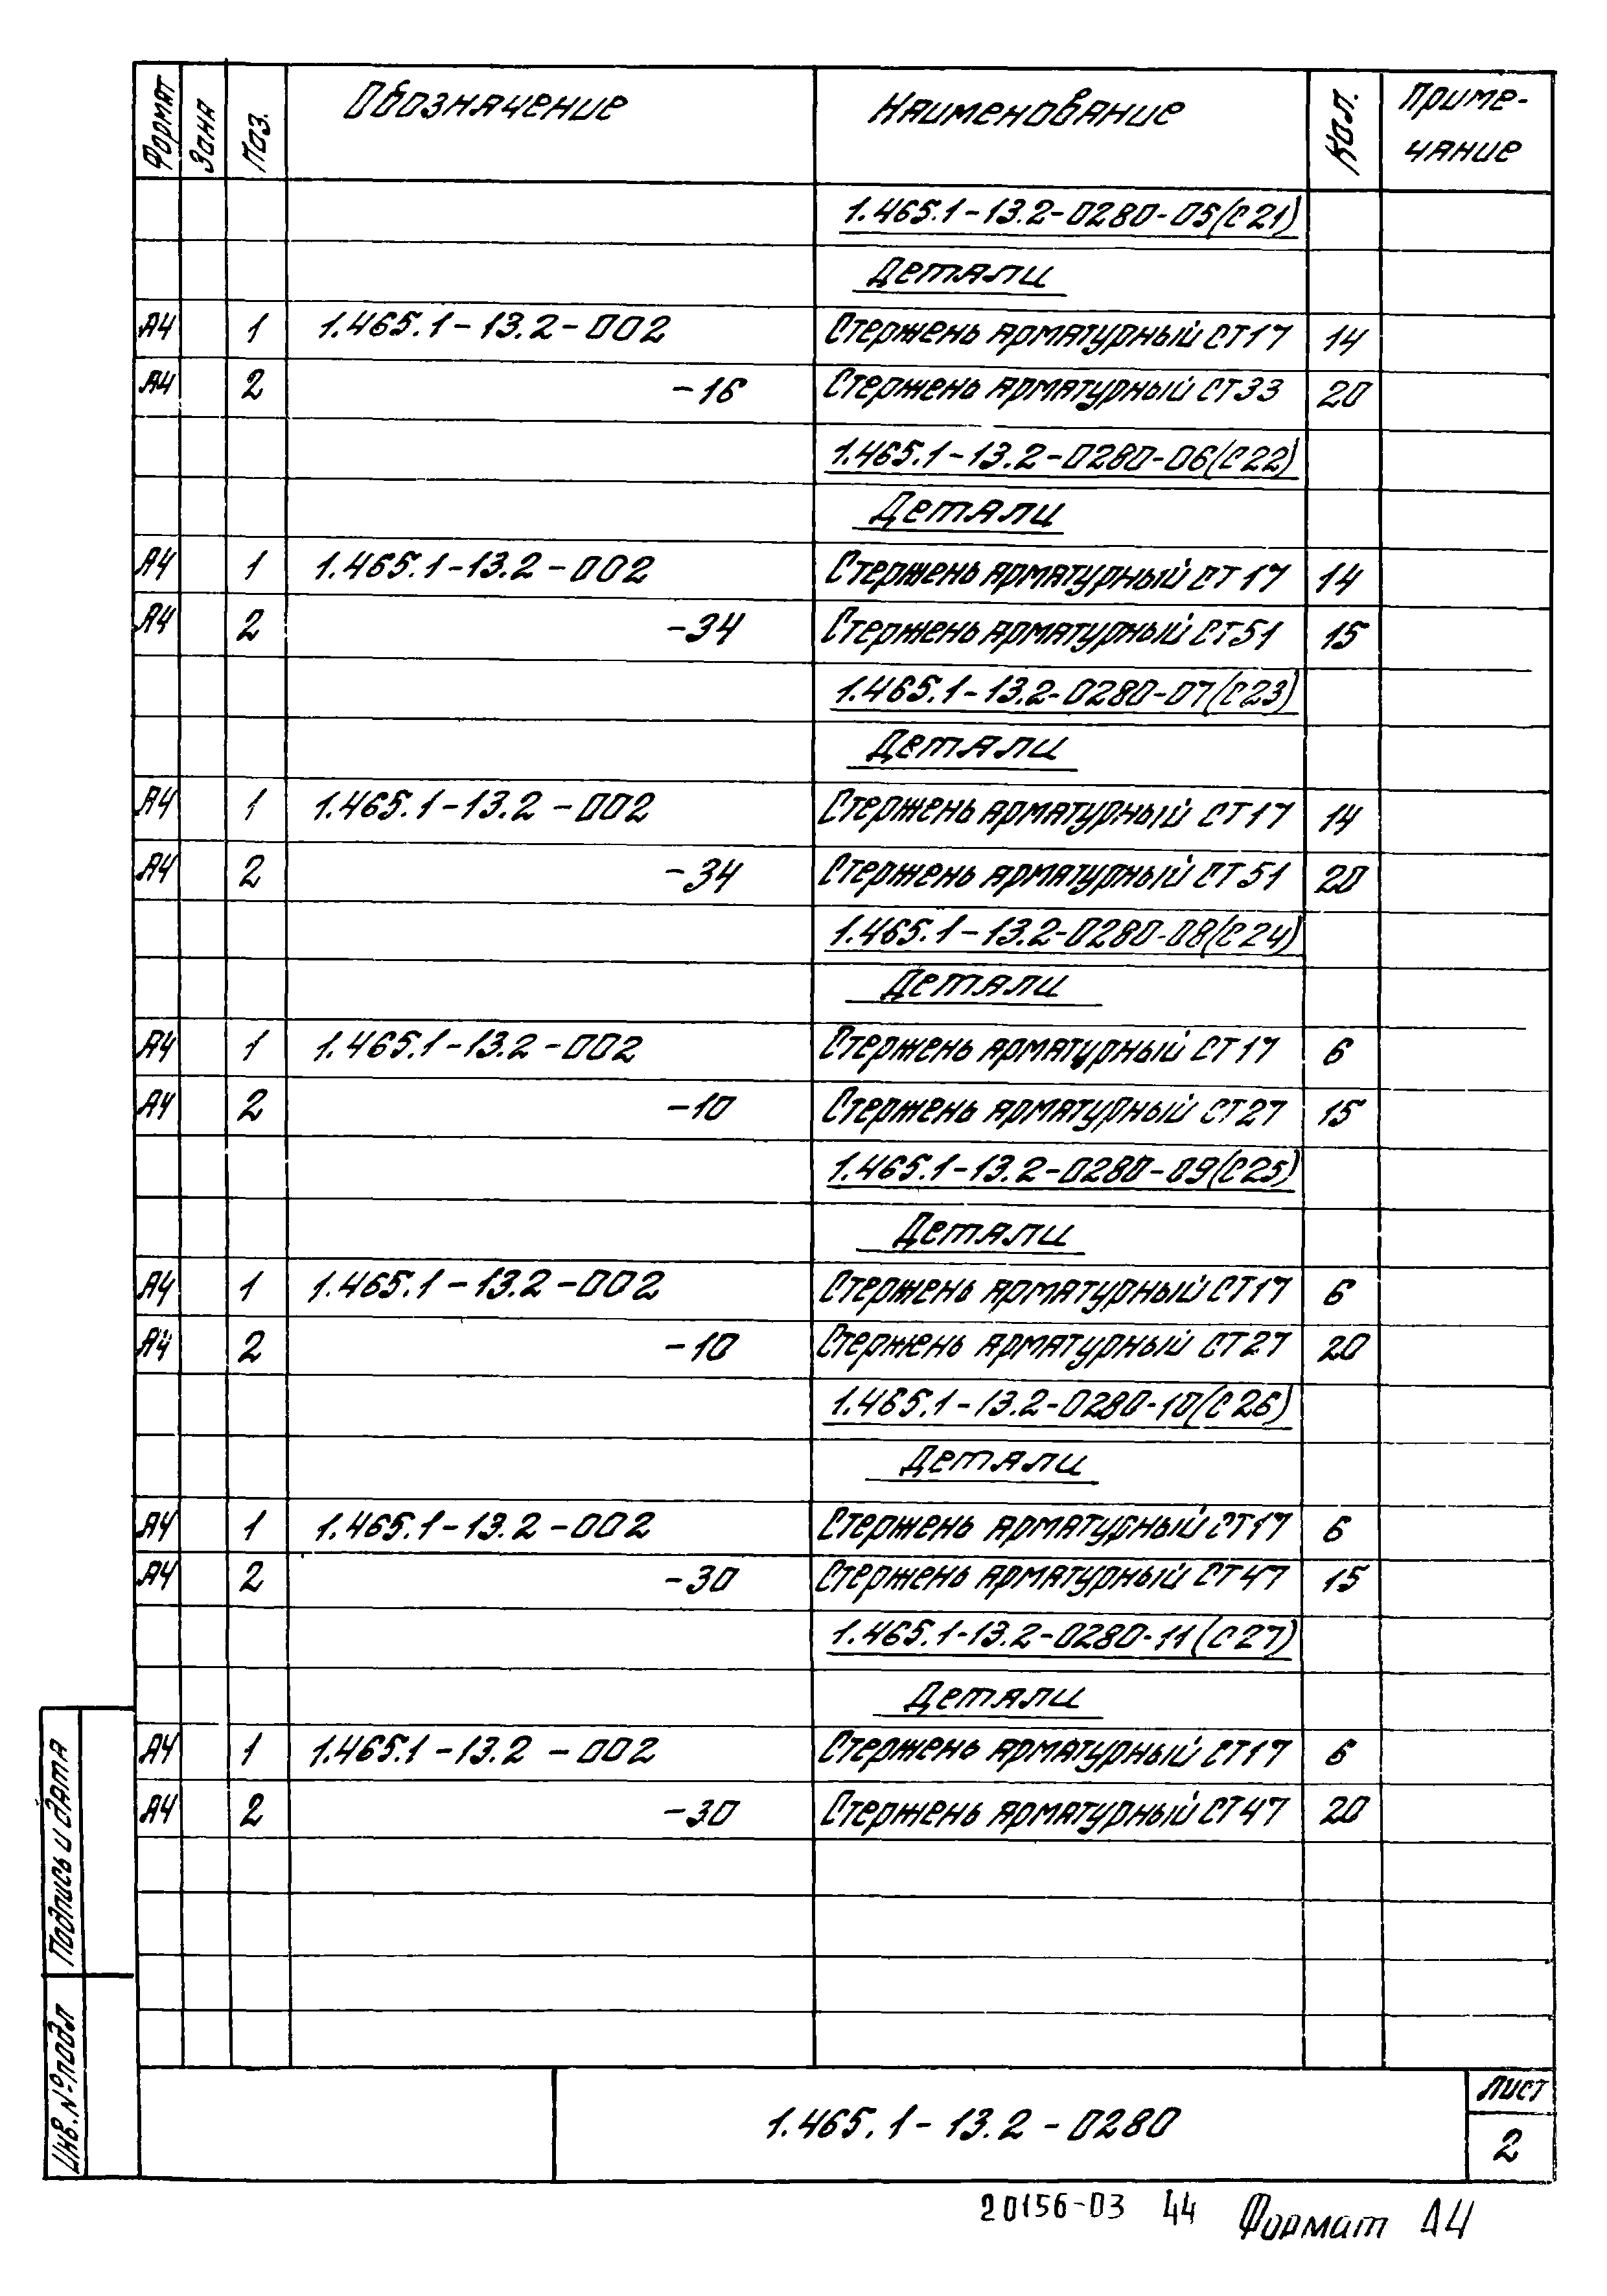 Формат Зона Поз. Обозначение Наименование Кол. Приме-
чание
1.465.1-13.2-0280-05(С21)
Детали
А4 1 1.465.1-13.2-002 Стержень арматурный СТ17 14
А4 2 -16 Стержень арматурный СТ33 20
1.465.1-13.2-0280-06(С22)
Детали
А4 1 1.465.1-13.2-002 Стержень арматурный СТ17 14
А4 2 -34 Стержень арматурный СТ51 15
1.465.1-13.2-0280-07(С23)
Детали
А4 1 1.465.1-13.2-002 Стержень арматурный СТ17 14
А4 2 -34 Стержень арматурный СТ51 20
1.465.1-13.2-0280-08(С24)
Детали
А4 1 1.465.1-13.2-002 Стержень арматурный СТ17 6
А4 2 -10 Стержень арматурный СТ27 15
1.465.1-13.2-0280-09(С25)
Детали
А4 1 1.465.1-13.2-002 Стержень арматурный СТ17 6
А4 2 -10 Стержень арматурный СТ27 20
1.465.1-13.2-0280-10(С26)
Детали
А4 1 1.465.1-13.2-002 Стержень арматурный СТ17 6
А4 2 -30 Стержень арматурный СТ47 15
1.465.1-13.2-0280-11(С27)
Детали
А4 1 1.465.1-13.2-002 Стержень арматурный СТ17 6
А4 2 -30 Стержень арматурный СТ47 20
Подпись и дата
Инв. № подл
1.465.1-13.2-0280
Лист
2
20156-03 44 Формат А4